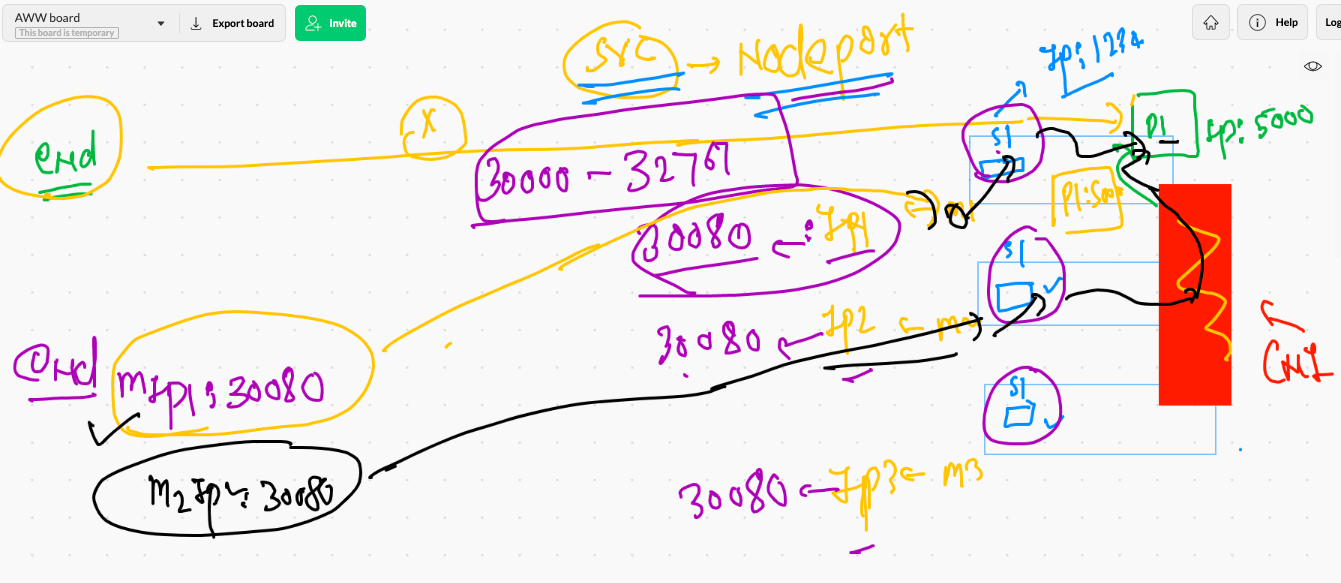 AWW board
This board is temporary
Export board
Invite
Help
Log
SVC → Nodeport
Ip:1234
end
X
S1
P1
Ip:5000
30000 - 32767
P1:500
30080 ← : Ip1
m1
S1
30080 ← Ip2 ← m2
end
m1Ip1:30080
CNI
S1
M2Ip2:30080
30080 ← Ip3 ← m3